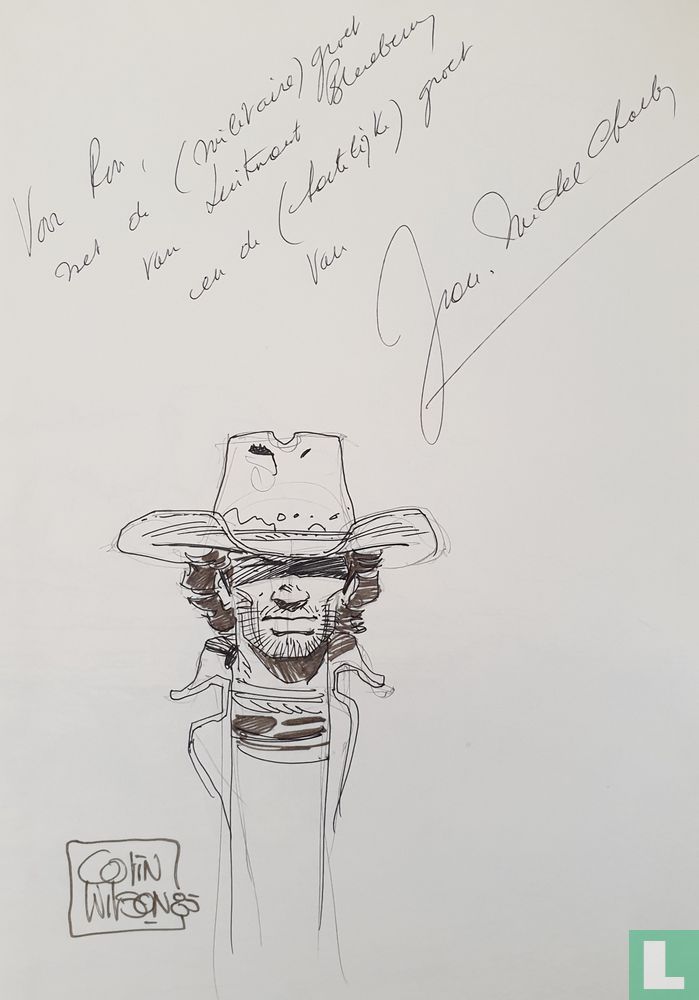 Voor Ron,
met de (militaire) groet
van Luitenant Blueberry
en de (hartelijke) groet
van
Jean-Michel Charlier
COLIN
WILSON 85
L